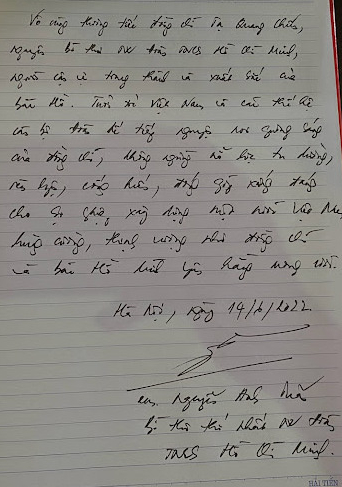 Vô cùng thương tiếc đồng chí Vũ Quang
nguyên bí thư TW đoàn TNCS Hồ Chí Minh,
người cán bộ trung thành và xuất sắc của
Bác Hồ. Tuổi trẻ Việt Nam và các thế hệ
cán bộ đoàn kế tiếp nguyện noi gương sáng
của đồng chí, không ngừng nỗ lực tu dưỡng,
rèn luyện, cống hiến, đóng góp xứng đáng
cho sự nghiệp xây dựng một nước Việt Nam
hùng cường, thịnh vượng như đồng chí
và Bác Hồ kính yêu hằng mong ước.
Hà Nội, ngày 14/6/2022
Nguyễn Anh Tuấn
Bí thư thứ nhất TW đoàn
TNCS Hồ Chí Minh.
HẢI TIẾN